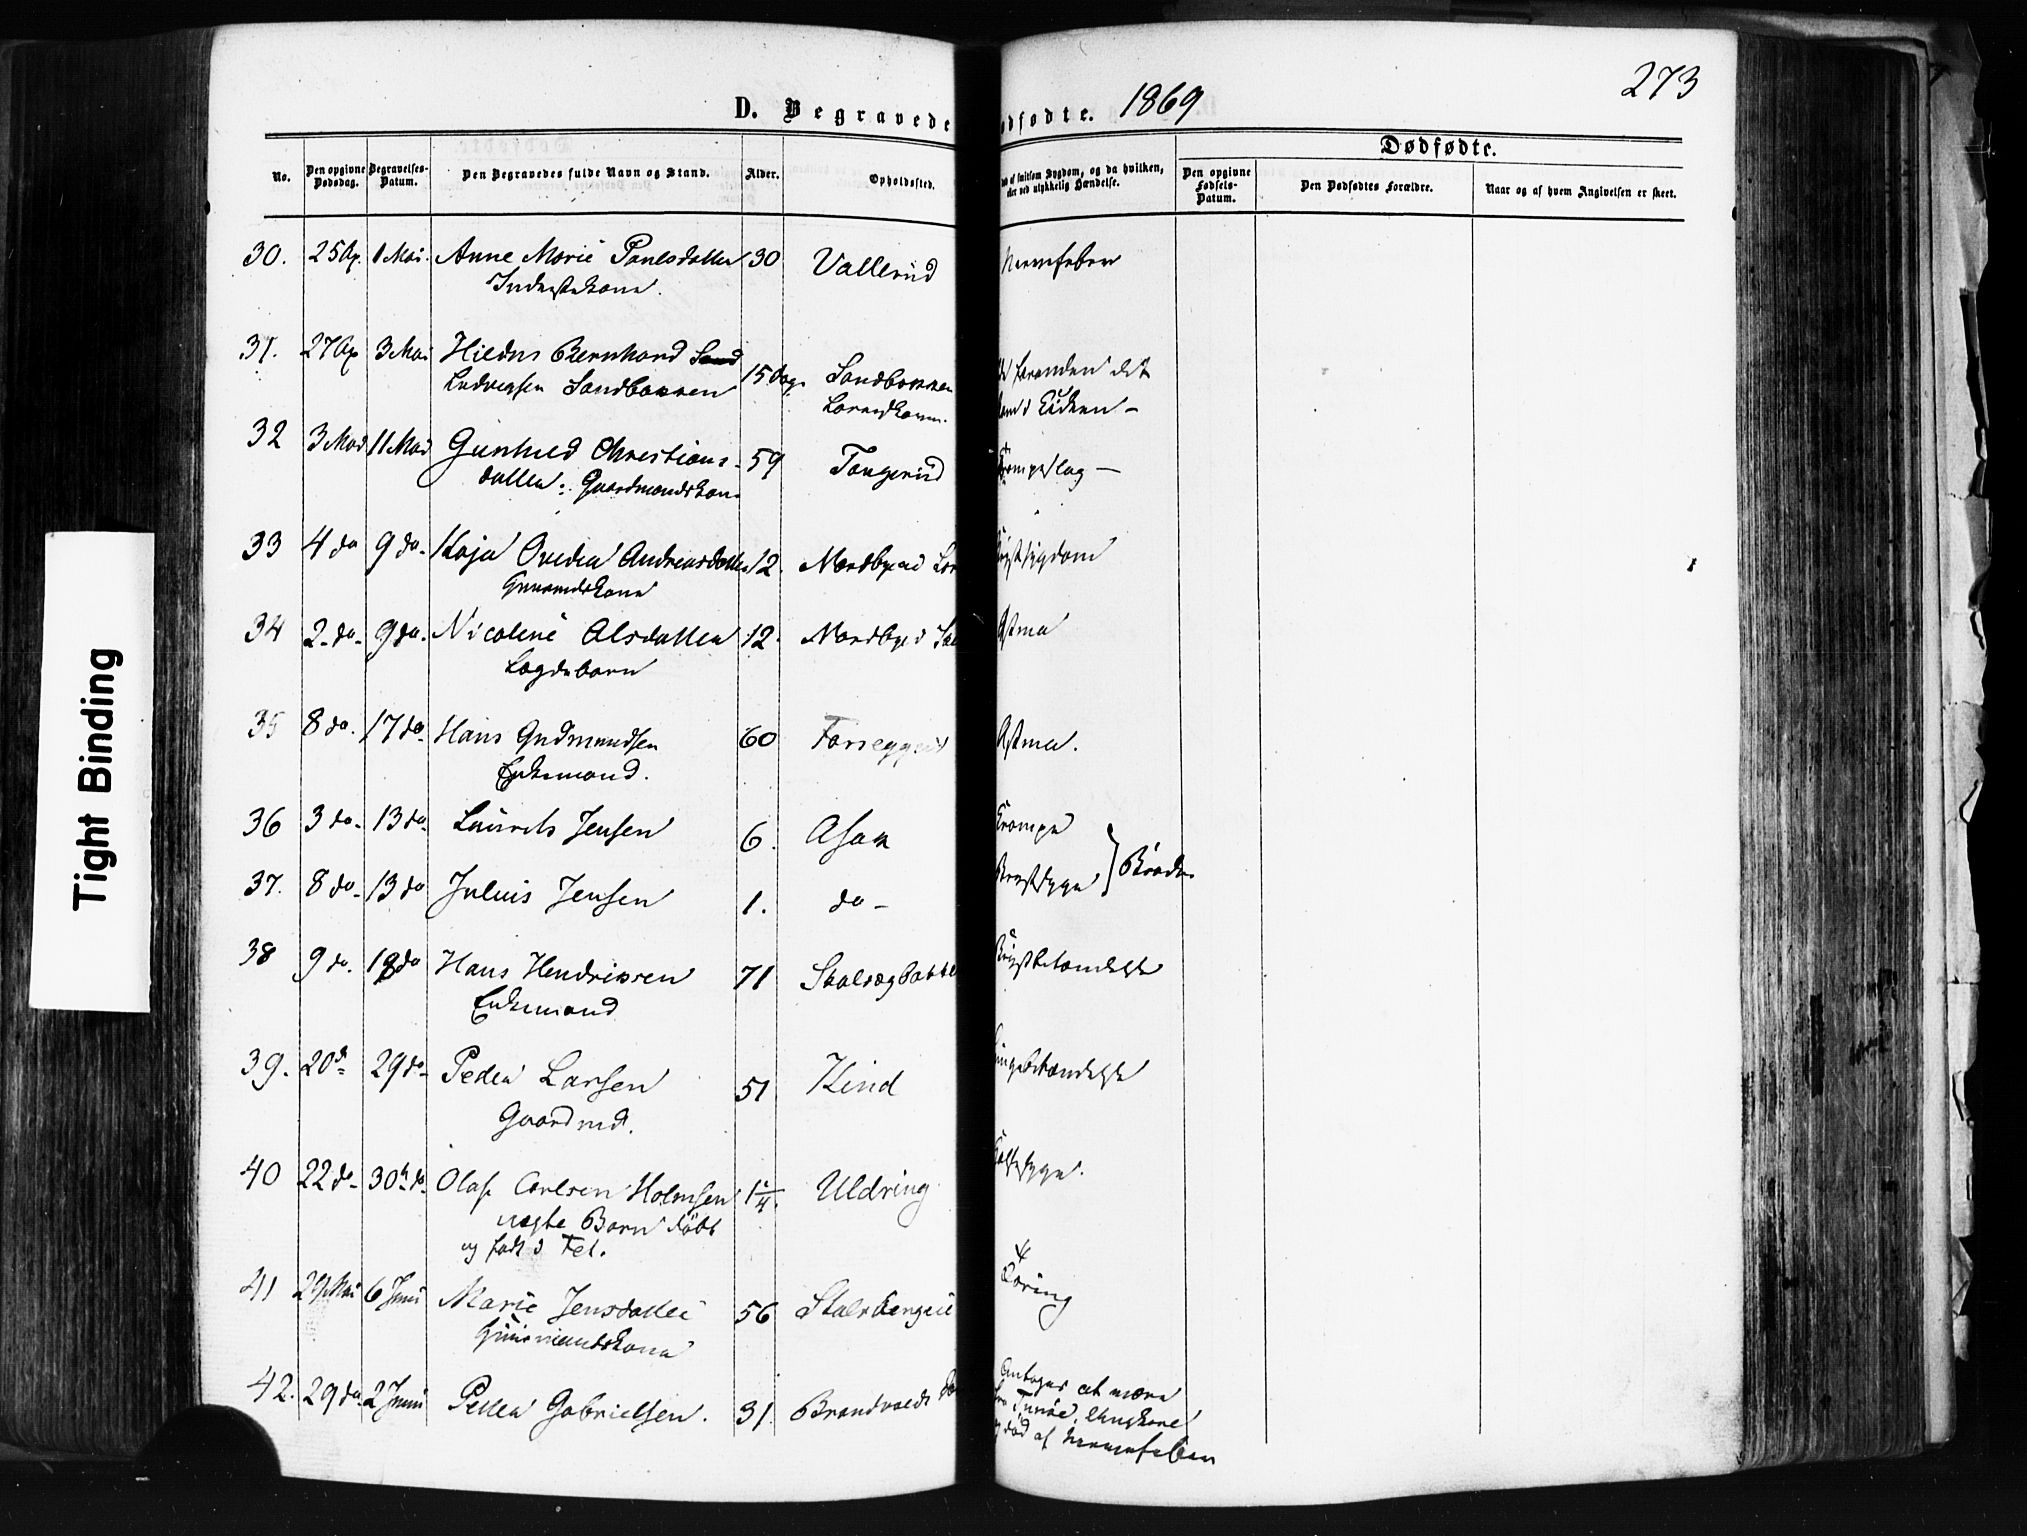 273
D. Begravede
dfødte. 1869
Dødfødte.
No.
Den opgivne Dødsdag.
Begravelses-Datum.
Den Begravedes fulde Navn og Stand.
Alder.
Opholdssted.
af smitsom Sygdom, og da hvilken,
eller ved ulykkelig Hændelse.
Den opgivne Fødsels-Datum.
Den Dødfødtes Forældre.
Naar og af hvem Angivelsen er skeet.
30. 25 Ap. 1 Mai. Anne Marie Paulsdatter 30 Vallerud Nervefeber
Inderstekone.
31. 27 Ap 3 Mai Hildus Bernhard Sand
Ludvigsen Sandbakken 15 Dage Sandbakken
32 3 Mai 11 Mai Gunhild Christians- 59 Tangerud
datter: Gaardmandskone
33 4 do 9 do- Kaja Ovedia Andreasdatter 12. Nordbye
34 2- do- 9 do. Nicoline Olsdatter 12. Nordbye Astma
Lægdebarn
35 8 do. 17 do- Hans Gudmundsen 60 Astma.
Enkemand.
36 3 do- 13 do- Laurits Jensen 6. Asak Krampe
37. 8 do- 13 do Julius Jensen 1. do- Brystsyge } Brødre
38 9 do. 18 do Hans Hendriksen 71 Brystbetændelse
Enkemand
39. 20 d- 29 do- Peder Larsen 51 Kind ungebetændelse
Gaardmd.
40 22 do- 30 do- Olaf Carlsen Holmsen 1 1/4. Uldring
uægte Barn født
og født i Fet.
41 29 Mai 6 Juni Marie Jensdatter 56 Tæring
Huusmandskone
42. 29 do. 2 Juni Peder Gabrielsen. 31. Brandvolds Antages at være
fra Tunøe. Ungkarl
død af Nervefeber
Tight Binding